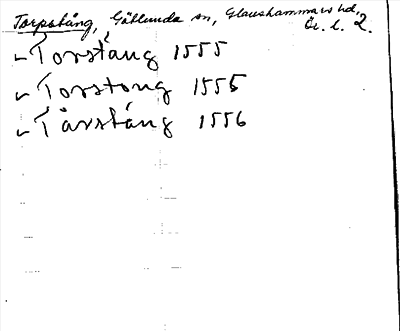 Torpstång, Gällunda sn, Glanshammars hd,
Ör. l. 2.
Torstång 1555
Torstong 1555
Tårstång 1556